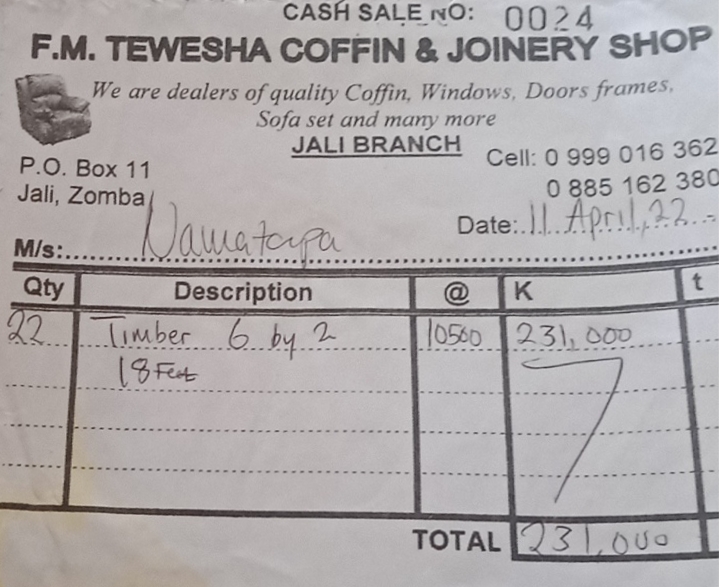 CASH SALE NO: 0024
F.M. TEWESHA COFFIN & JOINERY SHOP
We are dealers of quality Coffin, Windows, Doors frames,
Sofa set and many more
JALI BRANCH
P.O. Box 11 Cell: 0 999 016 362
Jali, Zomba 0 885 162 380
Date: 11 April, 22
M/s: Namatapa
Qty Description @ K t
22 Timber 6 by 2 10500 231,000
18 Feet
TOTAL 231,000